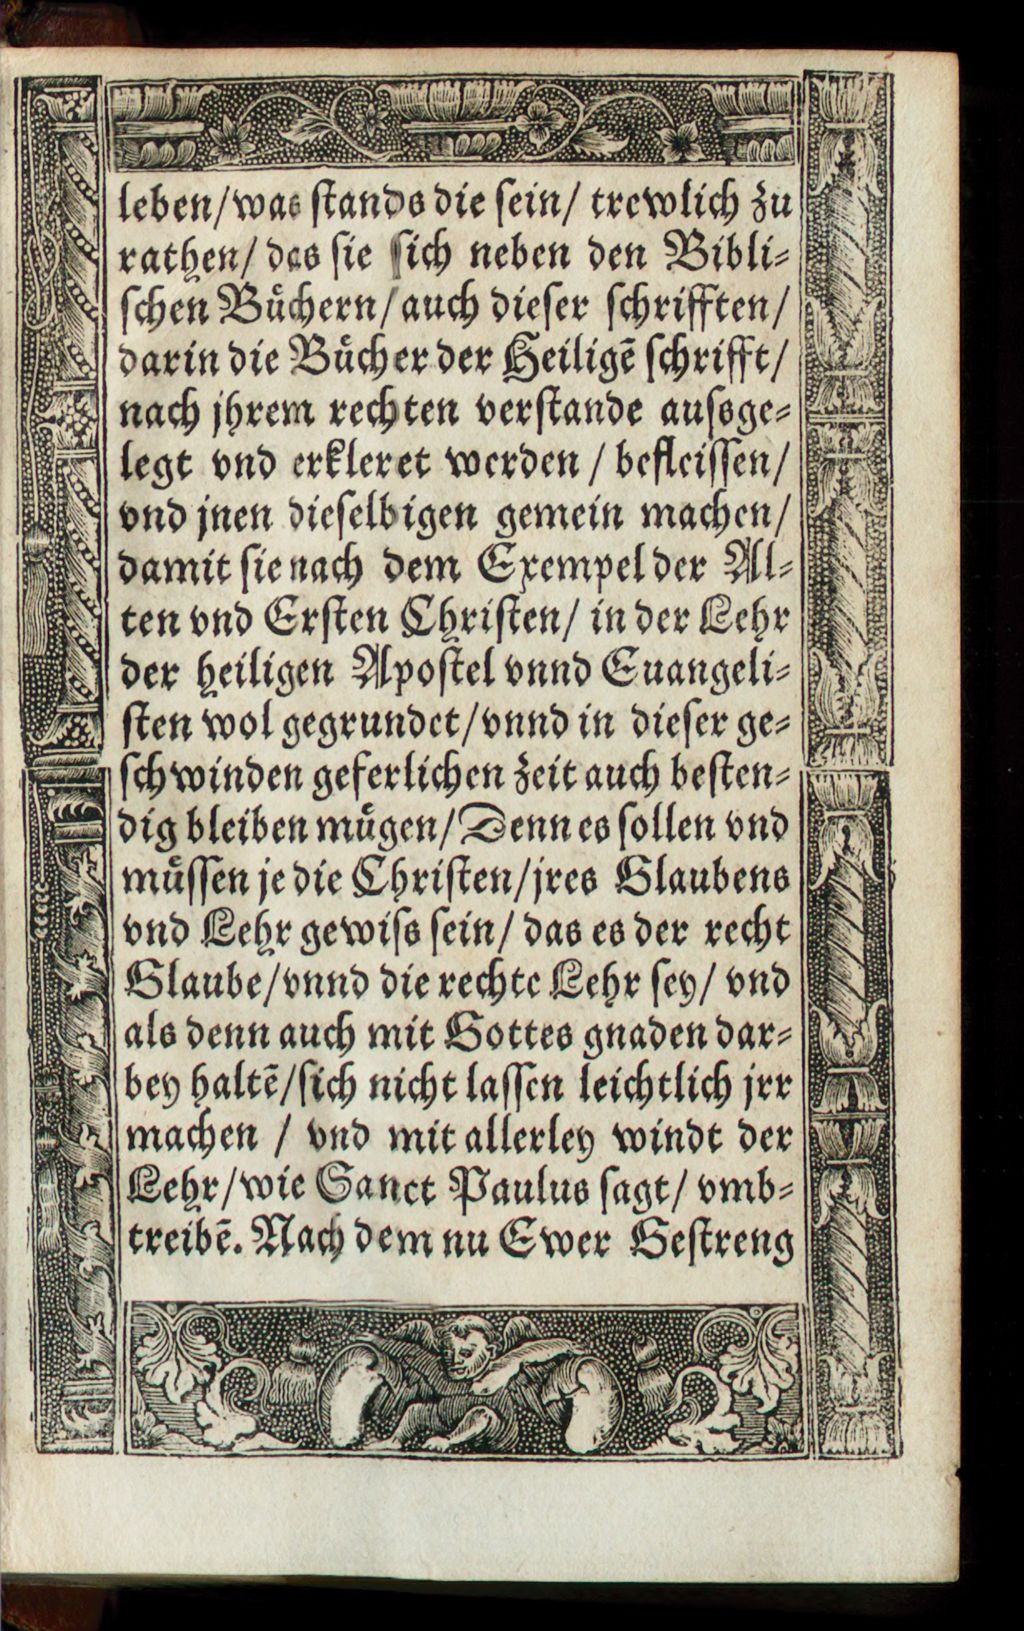 leben/was stands die sein/ trewlich zu
rathen/ das sie sich neben den Bibli⸗
schen Buͤchern/auch dieser schrifften/
darin die Buͤcher der Heiligē schrifft/
nach jhrem rechten verstande aussge⸗
legt vnd erkleret werden / befleissen/
vnd jnen dieselbigen gemein machen/
damit sie nach dem Exempel der Al⸗
ten vnd Ersten Christen/ in der Lehr
der heiligen Apostel vnnd Euangeli⸗
sten wol gegrundet/vnnd in dieser ge⸗
schwinden geferlichen zeit auch besten⸗
dig bleiben muͤgen/Denn es sollen vnd
muͤssen je die Christen/jres Glaubens
vnd Lehr gewiss sein/ das es der recht
Glaube/vnnd die rechte Lehr sey/ vnd
als denn auch mit Gottes gnaden dar⸗
bey haltē/sich nicht lassen leichtlich jrr
machen / vnd mit allerley windt der
Lehr/wie Sanct Paulus sagt/ vmb⸗
treibē. Nach dem nu Ewer Gestreng